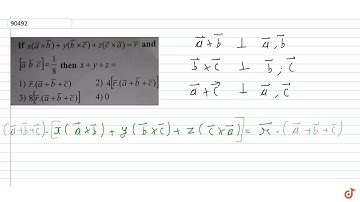 90492
If x(a̅×b̅)+y(b̅×c̅)+z(c̅×a̅)=r̅ and
[a̅ b̅ c̅]=1/8 then x+y+z=
1) r̅.(a̅+b̅+c̅) 2) 4[r̅.(a̅+b̅+c̅)]
3) 8[r̅.(a̅+b̅+c̅)] 4) 0
a⃗×b⃗ ⊥ a⃗, b⃗
b⃗×c⃗ ⊥ b⃗; c⃗
a⃗×c⃗ ⊥ a⃗, c⃗
(a⃗+b⃗+c⃗)·[x(a⃗×b⃗)+y(b⃗×c⃗)+z(c⃗×a⃗)]=r⃗·(a⃗+b⃗+c⃗)